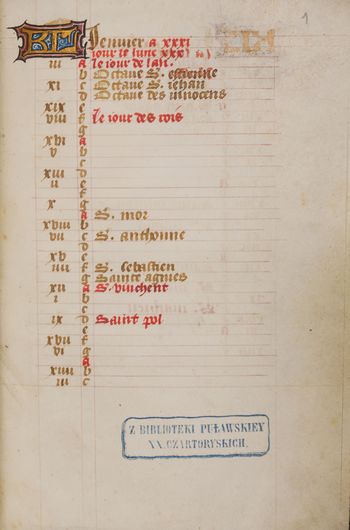 1
KL Jenvier a xxxi
jour la lune xxx
iii a le jour de lan.
b Octave S. estienne
xi c Octave S. iehan
d Octave des innocens
xix e
viii f le jour des rois
g
xvi a
v b
c
xiii d
ii e
f
x g
a S. mor
xviii b
vii c S. anthoinne
d
xv e
iiii f S. sebastien
g Sainte agnes
xii a S. vinchent
i b
c
ix d Saint pol
e
xvii f
vi g
a
xiiii b
iii c
Z BIBLIOTEKI PUŁAWSKIEY
XX. CZARTORYSKICH.